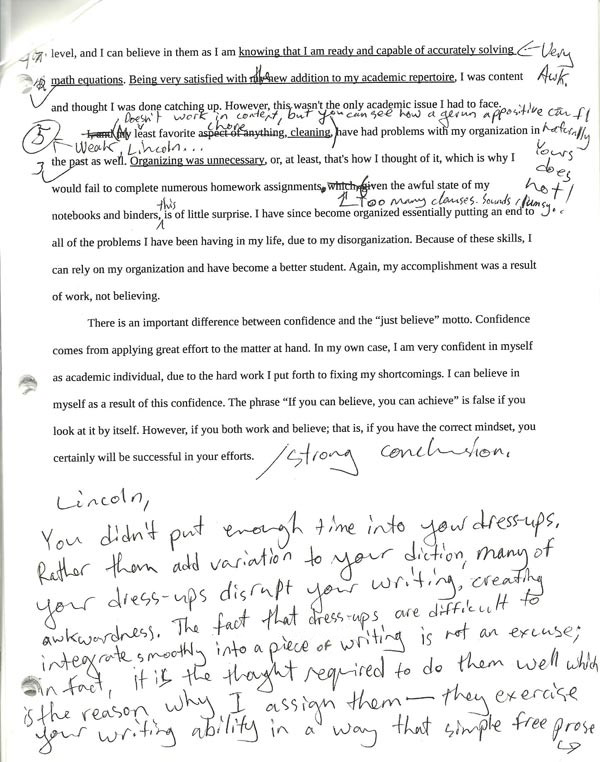 level, and I can believe in them as I am knowing that I am ready and capable of accurately solving ← Very
math equations. Being very satisfied with new addition to my academic repertoire, I was content Awk.
and thought I was done catching up. However, this wasn't the only academic issue I had to face.
Doesn't work in context, but you can see how a gerun appositive can fit
5 I, and my least favorite aspect of anything, cleaning, have had problems with my organization in naturally
chore
← Weak, Lincoln...
3 the past as well. Organizing was unnecessary, or, at least, that's how I thought of it, which is why I Yours
does
not!
would fail to complete numerous homework assignments, which, given the awful state of my
↑ Too many clauses. Sounds clumsy...
notebooks and binders, this is of little surprise. I have since become organized essentially putting an end to
all of the problems I have been having in my life, due to my disorganization. Because of these skills, I
can rely on my organization and have become a better student. Again, my accomplishment was a result
of work, not believing.
There is an important difference between confidence and the “just believe” motto. Confidence
comes from applying great effort to the matter at hand. In my own case, I am very confident in myself
as academic individual, due to the hard work I put forth to fixing my shortcomings. I can believe in
myself as a result of this confidence. The phrase “If you can believe, you can achieve” is false if you
look at it by itself. However, if you both work and believe; that is, if you have the correct mindset, you
certainly will be successful in your efforts. /strong conclusion.
Lincoln,
You didn't put enough time into your dress-ups.
Rather them add variation to your diction, many of
your dress-ups disrupt your writing, creating
awkwardness. The fact that dress-ups are difficult to
integrate smoothly into a piece of writing is not an excuse;
in fact, it is the thought required to do them well which
is the reason why I assign them — they exercise
your writing ability in a way that simple free prose